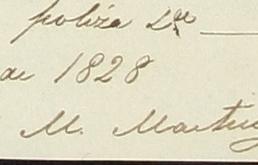 poliza
de 1828
M. Martin